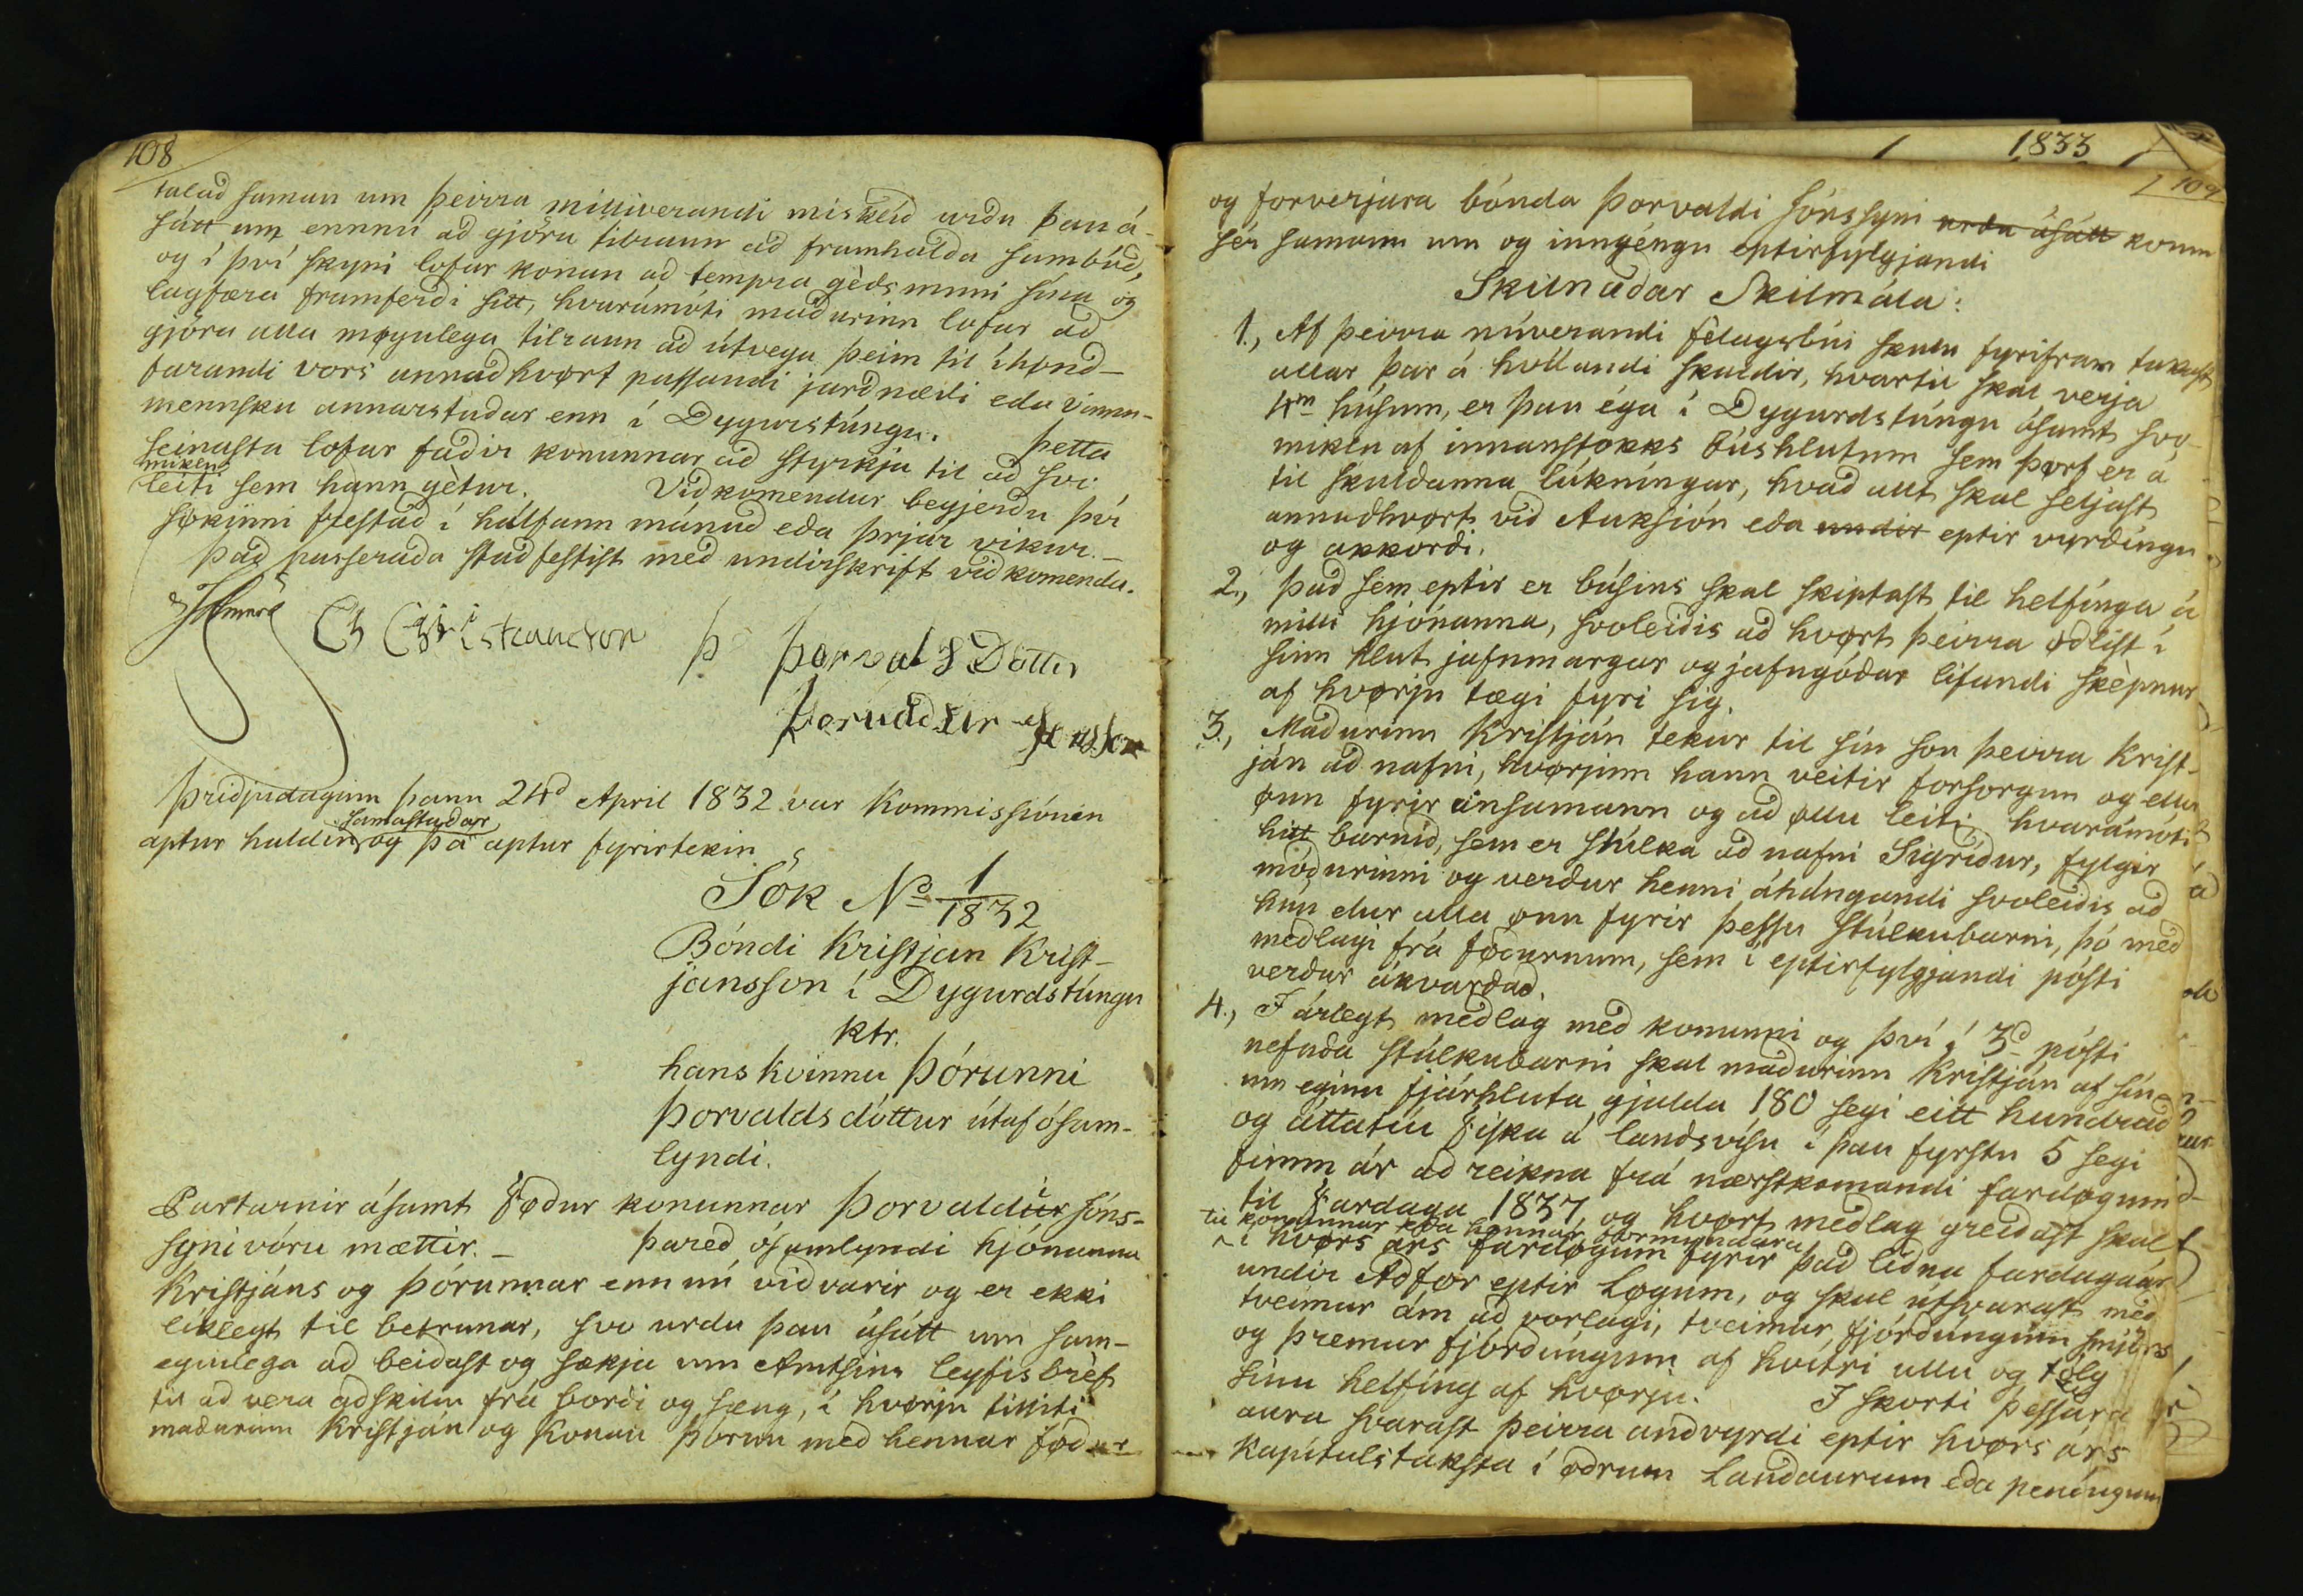 108
talað saman um þeirra milliverandi misklíð urðu þau á-
sátt um ennnú að gjöra tilraun að framhalda sambúð,
og í því skyni lofar konan að tempra gèðsmuni sína og
lagfæra framferði sitt, hvarámóti maðurinn lofar að
gjöra alla møgulega tilraun að útvega þeim til íhønd-
farandi vors annaðhvørt passandi jarðnæði eða vinnu-
mennsku annarstaðar enn í Dygurstúngu. þetta
seinasta lofar faðir konunnar að styrkja til að svo
miklu
leiti sem hann gètur. Viðkomendur begjerðu því
søkinni frestað í hálfann mánuð eða þrjár vikur. -
Það passeraða staðfestist með undirskrift viðkomenda.
Þ Þorvalds Dotter
Þriðjudaginn þann 24d April 1832 var Kommissiónin
samastaðar
aptur haldin, og þá aptur fyrirtekin
Sök No 1/1832
Bóndi Kristjan Krist-
jansson í Dygurdstúngu
ktr.
hans kvinnu Þórunni
Þorvaldsdóttur útaf ósam-
lyndi.
Parturnir ásamt Føður konunnar Þorvaldi Jóns-
syni vóru mættir. - Þareð ósamlyndi hjónanna
Kristjáns og Þórunnar enn nú viðvarir og er ekki
líklegt til betrunar, svo urdu þau ásátt um sam-
eginlega að beiðast og sækja um Amtsins leyfisbrèf
til að vera aðskilin frá borði og sæng, í hvørju tilliti
maðurinn Kristján og Konan Þórun með hennar føður
1833
109
og forverjara bónda Þorvaldi Jónssyni urðu ásátt komu
sér samann um og inngéngu eptirfylgjandi
Skilnaðar Skilmála:
1., Af þeirra núverandi fèlagsbúi skulu fyrifram takast
allar þar á hvílandi skuldir, hvartil skal verja
4m húsum, er þau éga í Dygurdstúngu ásamt svo
miklu af innanstokks búshlutum sem þørf er á
til skuldanna lúkníngar, hvað allt skal seljast
annaðhvørt við Auksión eða undir eptir vyrðíngu
og akkorði.
2., Það sem eptir er búsins skal skiptast til helfínga á
milli hjónanna, svoleiðis að hvørt þeirra øðlist í
sinn hlut jafnmargar og jafngóðar lifandi skèpnur
af hvørju tægi fyri sig.
3., Maðurinn Kristján tekur til sín son þeirra Krist-
ján að nafni, hvørjum hann veitir forsorgun og elur
ønn fyrir einsamann og að øllu leiti, hvarámóti
hitt barnið, sem er stúlka að nafni Sigríður, fylgir
móðurinni og verður henni áhángandi svoleiðis að
hún elur alla ønn fyrir þessu stúlkubarni, þó með
meðlagi frá føðurnum, sem í eptirfylgjandi pósti
verður ákvarðað.
4., Í árlegt meðlag með konunni og því í 3d pósti
nefnda stúlkubarni skal maðurinn Kristján af sín-
um eginn fjárhluta gjalda 180 segi eitt hundrað
og áttatíu Fiska á landsvísu í þau fyrstu 5 segi
fimm ár að reikna frá næstkomandi fardøgum
til Fardaga 1837, og hvørt meðlag greiðast skal
til konunnar eða hennar formyndara
í hvørs árs fardøgum fyrir það liðna fardagaár
undir Aðfør eptir Løgum, og skal útsvarast með
tveimur ám að vorlagi, tveimur fjórðúngum smjørs
og þremur fjórðúngum af hvítri ullu og tólg
sinn helfíng af hvørju. Í skorti þessara
aura svarast þeirra andvyrði eptir hvørs árs
Kapítulstaksta í øðrum Landaurum eða peníngum